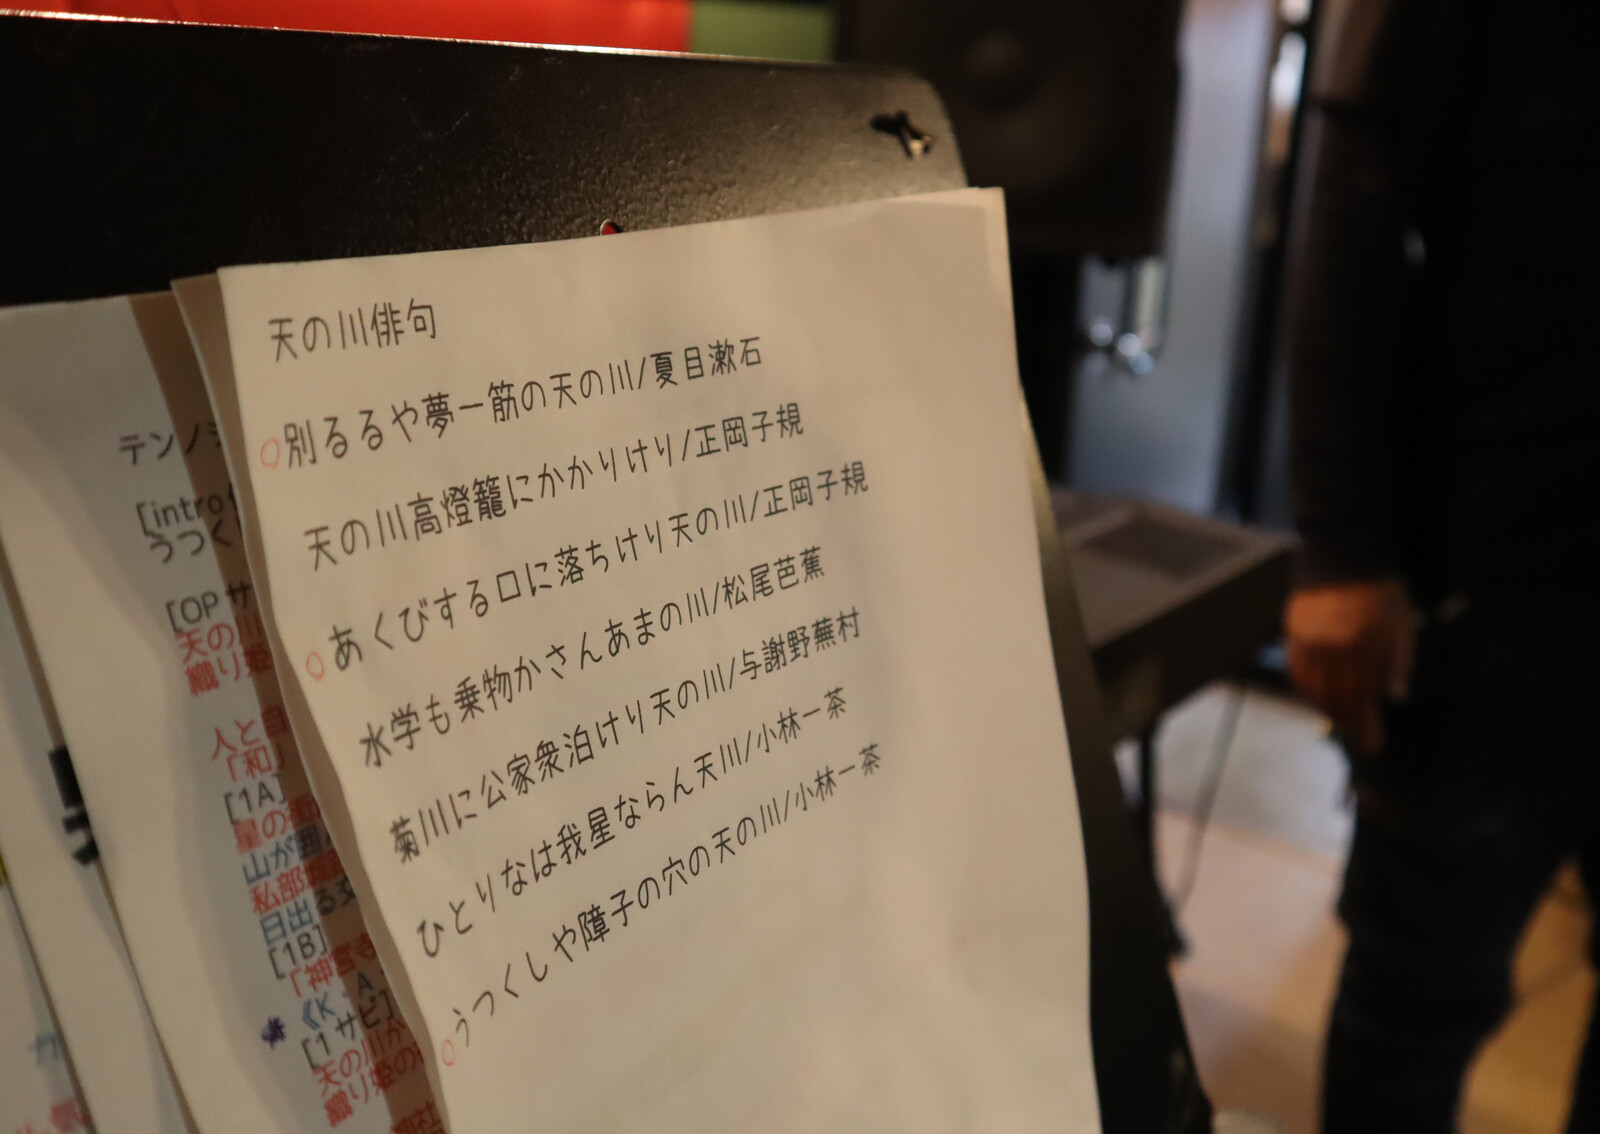 天の川俳句
別るるや夢一筋の天の川/夏目漱石
天の川高燈籠にかかりけり/正岡子規
あくびする口に落ちけり天の川/正岡子規
水学も乗物かさんあまの川/松尾芭蕉
菊川に公家衆泊けり天の川/与謝野蕪村
ひとりなは我星ならん天川/小林一茶
うつくしや障子の穴の天の川/小林一茶
テンノジ
[intro
うつく
[OP サ
天の川
織り姫
人と自
「和」
[1A]
星の街
山が囲
私部
日出る交
[1B]
「神宮寺
《K.A.
[1サビ]
天の川か
織り姫の
神社